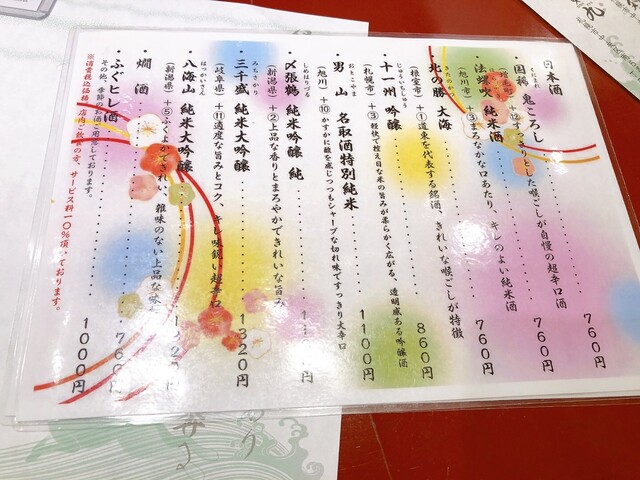 日本酒
・国稀 鬼ころし……760円
くにまれ
(増毛町) +12 すっきりとした喉ごしが自慢の超辛口酒
・法螺吹 純米酒……760円
(旭川市) +3 まろやかな口あたり、キレのよい純米酒
・北の勝 大海……760円
きたのかつ
(根室市) +1 道東を代表する銘酒、きれいな喉ごしが特徴
・十一州 吟醸……860円
じゅういちしゅう
(札幌市) +3 軽快で控え目な米の旨みが柔らかく広がる、透明感ある吟醸酒
・男山 名取酒特別純米……1100円
おとこやま
(旭川) +10 かすかに酸を感じつつもシャープな切れ味ですっきり大辛口
・〆張鶴 純米吟醸 純……円
しめはりつる
(新潟県) +2 上品な香りとまろやかできれいな旨み
・三千盛 純米大吟醸……1320円
みちさかり
(岐阜県) +11 適度な旨みとコク、キレ味鋭い超辛口
・八海山 純米大吟醸……円
はっかいさん
(新潟県) +5 ふくよかできれい、雑味のない上品な味
・燗酒……760円
・ふぐヒレ酒……1000円
その他、季節のお酒ご用意しております。
※消費税込価格 店内ご飲食の方、サービス料一〇%頂いております。